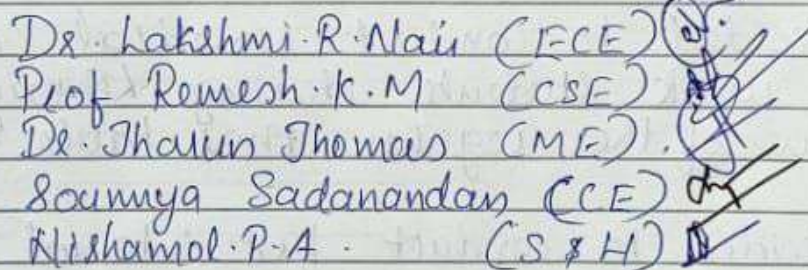 Dr. Lakshmi.R.Nair (ECE)
Prof Remesh.K.M (CSE)
Dr. Tharun Thomas (ME).
Soumya Sadanandan (CE)
Nishamol.P.A. (S & H)